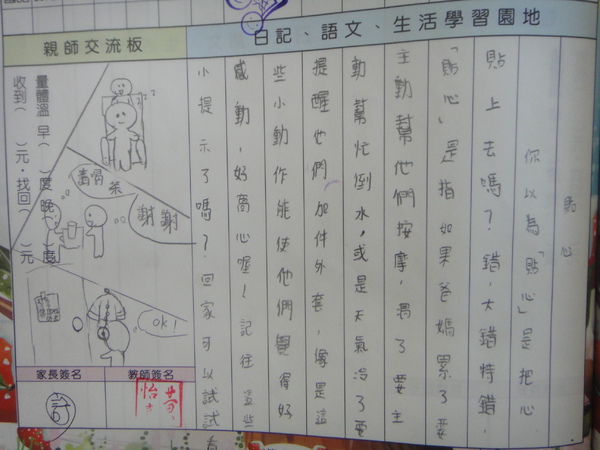 日記、語文、生活學習園地
貼心
你以為「貼心」是把心
貼上去嗎？錯，大錯特錯，
「貼心」是指如果爸媽累了要
主動幫他們按摩，渴了要主
動幫忙倒水，或是天氣冷了要
提醒他們加件外套，像是這
些小動作能使他們覺得好
感動，好高心喔！記住這些
小提示了嗎？回家可以試試看
親師交流板
量體溫 早（ ）度 晚（ ）度
收到（ ）元，找回（ ）元
茶
謝謝
OK!
家長簽名
教師簽名
許
黃
怡